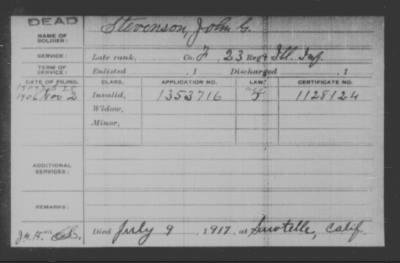 DEAD
NAME OF SOLDIER:
Stevenson, John G.
SERVICE:
Late rank, Co. F, 23 Reg't Ill. Inf.
TERM OF SERVICE:
Enlisted , 1 Discharged , 1
DATE OF FILING. CLASS. APPLICATION NO. LAW. CERTIFICATE NO.
1906 Nov 2 Invalid, 1353716 1128124
Widow,
Minor,
ADDITIONAL SERVICES:
REMARKS:
Died July 9, 1917, at Sawtelle, Calif.